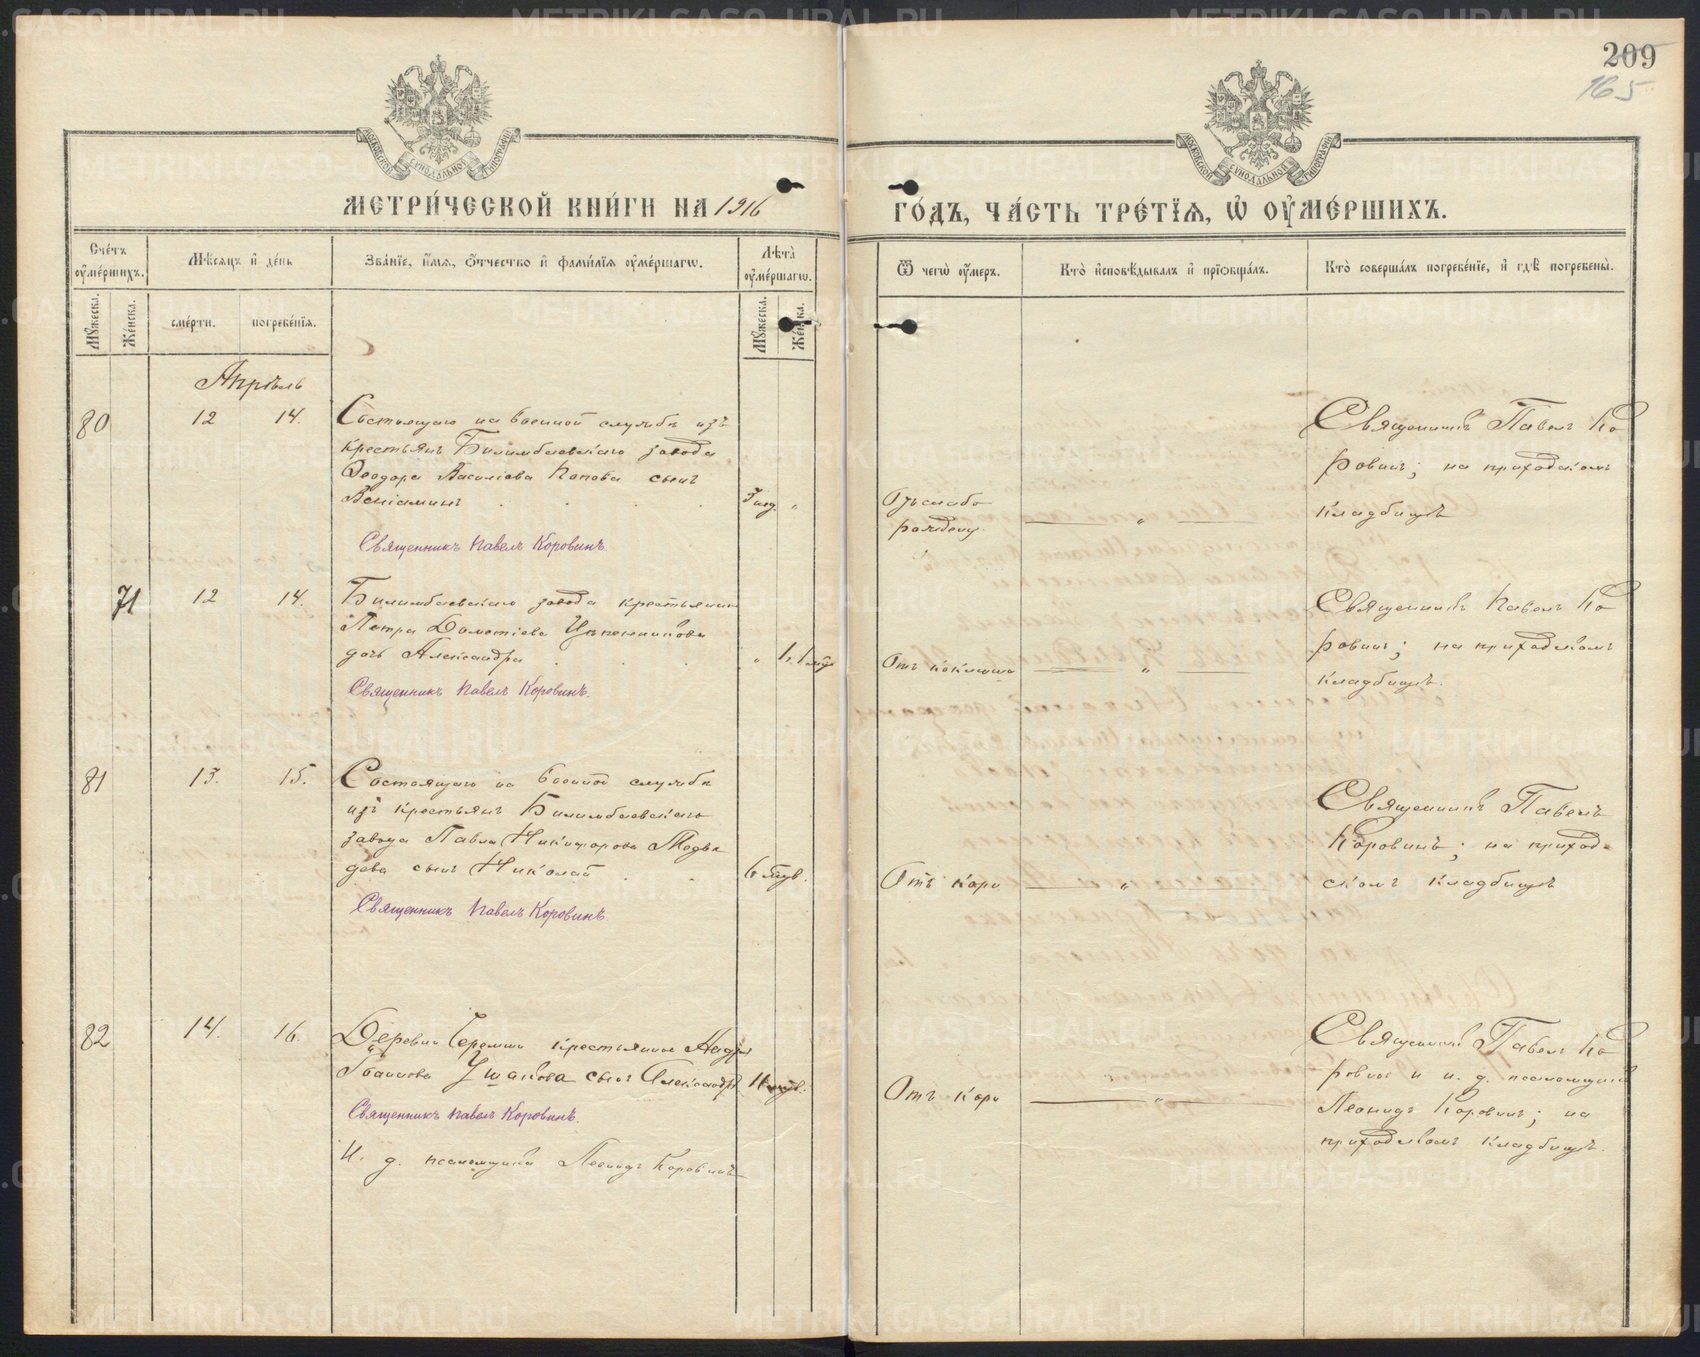 209
165
МЕТРИ́ЧЕСКОЙ КНИ́ГИ НА 1916
ГО́ДЪ, ЧА́СТЬ ТРЕ́ТЇѦ, Ѡ҆ ОУ҆МЕ́РШИХЪ.
Сче́тъ оу҆ме́ршихъ.
Мꙋ́жеска.
Же́нска.
Мѣ́сѧцъ и҆ де́нь
сме́рти.
погребе́нїѧ.
Зва́нїе, и҆́мѧ, ѻ҆́тчество и҆ фами́лїѧ оу҆ме́ршагѡ.
Лѣ́та̀ оу҆ме́ршагѡ.
Мꙋ́жеска.
Же́нска.
Ѿ чегѡ̀ оу҆́меръ.
Кто̀ и҆сповѣ́дывалъ и҆ прїѡбща́лъ.
Кто̀ соверша́лъ погребе́нїе, и҆ гдѣ̀ погребены̀.
Апрѣль
80
12
14.
Состоящаго на военной службѣ изъ
крестьянъ Билимбаевскаго завода
Ѳеодора Васильева Попова сынъ
Веніаминъ
Священникъ Павелъ Коровинъ.
Отъ слабо
рожденія
Священникъ Павелъ Ко
ровинъ; на приходскомъ
кладбищѣ
71
12
14.
Билимбаевскаго завода крестьянина
Петра Дометіева
дочь Александра
Священникъ Павелъ Коровинъ.
Отъ коклюша
Священникъ Павелъ Ко
ровинъ; на приходскомъ
кладбищѣ.
81
13.
15.
Состоящаго на военной службѣ
изъ крестьянъ Билимбаевскаго
завода Павла Никифорова Медвѣ
дева сынъ Николай
Священникъ Павелъ Коровинъ
Отъ кори
Священникъ Павелъ
Коровинъ; на приход-
скомъ кладбищѣ
82
14.
16.
Деревни Черемши крестьянина
Ушакова сынъ Александръ
Священникъ Павелъ Коровинъ.
И. д. псаломщика Леонидъ Коровинъ
Отъ кори
Священникъ Павелъ Ко
ровинъ и и. д. псаломщика
Леонидъ Коровинъ; на
приходскомъ кладбищѣ.
METRIKI.GASO-URAL.RU